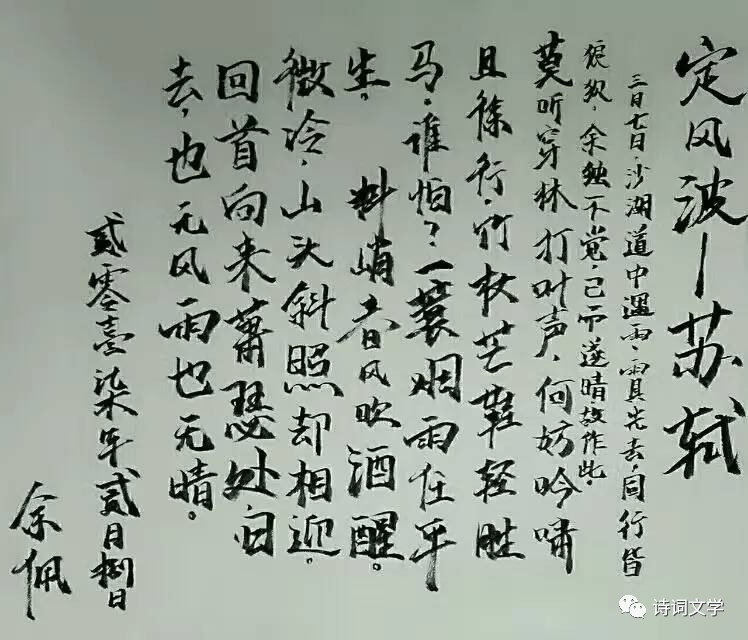 定风波—苏轼
三日七日，沙湖道中遇雨，雨具先去，同行皆
狼狈，余独不觉，已而遂晴，故作此。
莫听穿林打叶声，何妨吟啸
且徐行，竹杖芒鞋轻胜
马，谁怕？一蓑烟雨任平
生。 料峭春风吹酒醒。
微冷，山头斜照却相迎。
回首向来萧瑟处，归
去，也无风雨也无晴。
贰零壹柒年贰月捌日
余佩
诗词文学